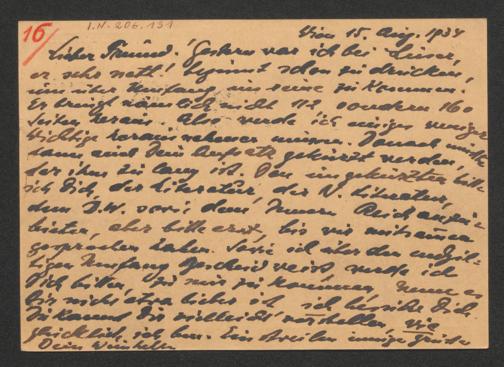 16/ I.N. 206.131
Wien 15. Aug. 1934
Lieber Freund! Gestern war ich bei Leiser,
er sehr nett! beginnt schon zu drucken,
um über Umfang ins reine zu kommen.
Er bringt nämlich nicht 112 sondern 160
Seiten heraus. Also werde ich einiges weniger
wichtige herausnehmen müssen. Danach
kann und Dein Aufsatz gekürzt werden,
der ihm zu lang ist. Den ungekürzten bitte
ich Dich, der Literatur, der N. Literatur,
dem I.W. sowie dem Innern Reich anzu-
bieten, aber bitte erst, bis wir mitsammen
gesprochen haben. Sowie ich über den endgül-
tigen Umfang Bescheid weiß, werde ich
Dich bitten, zu mir zu kommen, wenn es
Dir nicht etwa lieber ist, ich besuche Dich.
Du kannst Dir vielleicht vorstellen, wie
glücklich ich bin. Einstweilen innige Grüße
Dein